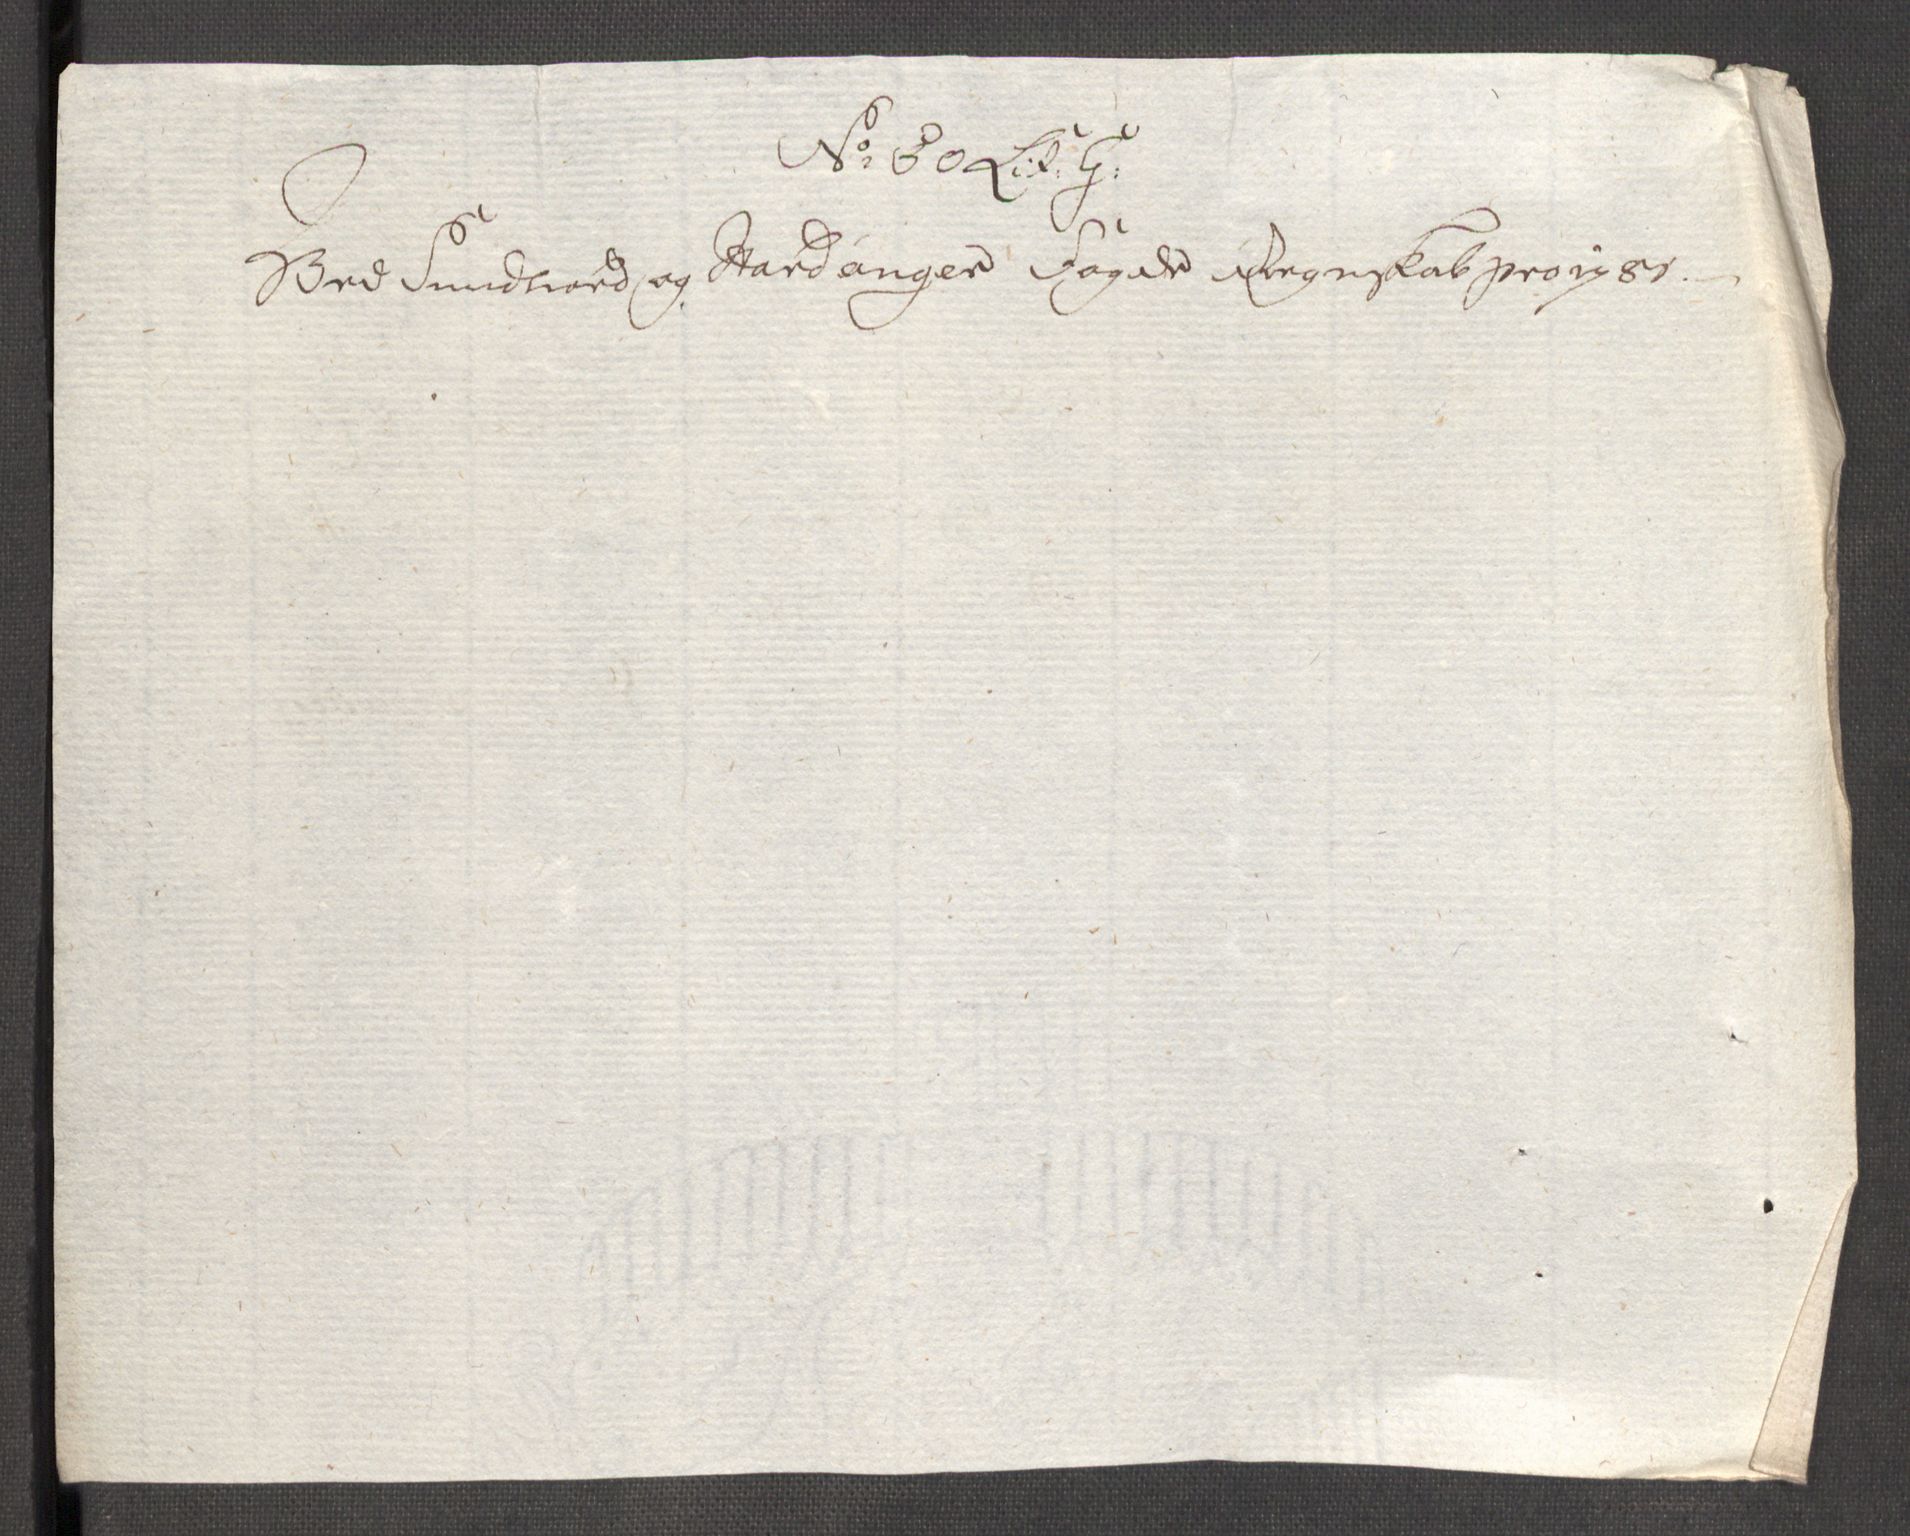 No: 60 Lit: G:
Ved Sundhord og Hardanger Fogde Regnskab pro 1781.